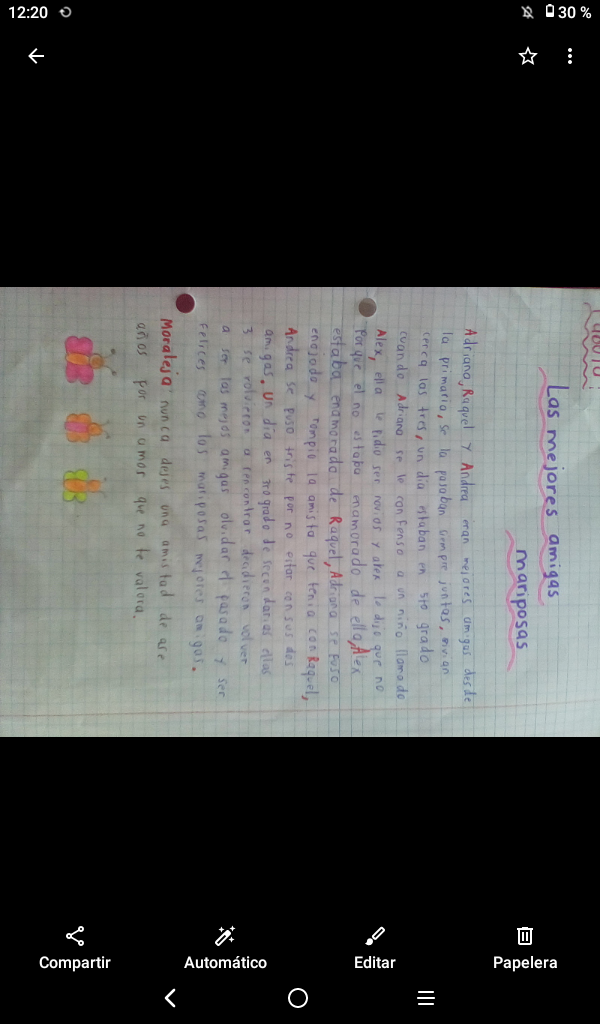 12:20
30 %
Las mejores amigas
mariposas
Adriana, Raquel y Andrea eran mejores amigas desde
la primaria, se la pasaban siempre juntas, vivian
cerca las tres, un día estaban en 5to grado
cuando Adriana se le confenso a un niño llamado
Alex, ella le pidio ser novios y alex le dijo que no
Porque el no estaba enamorado de ella, Alex
estaba enamorado de Raquel, Adriana se puso
enojada y rompio la amista que tenia con Raquel,
Andrea se puso triste por no estar con sus dos
amigas. Un día en 3ro grado de secundarias ellas
3 se volvieron a encontrar decidieron volver
a ser las mejos amigas olvidar el pasado y ser
Felices como las mariposas mejores amigas.
Moraleja: nunca dejes una amistad de ase
años por un amor que no te valora.
Compartir
Automático
Editar
Papelera